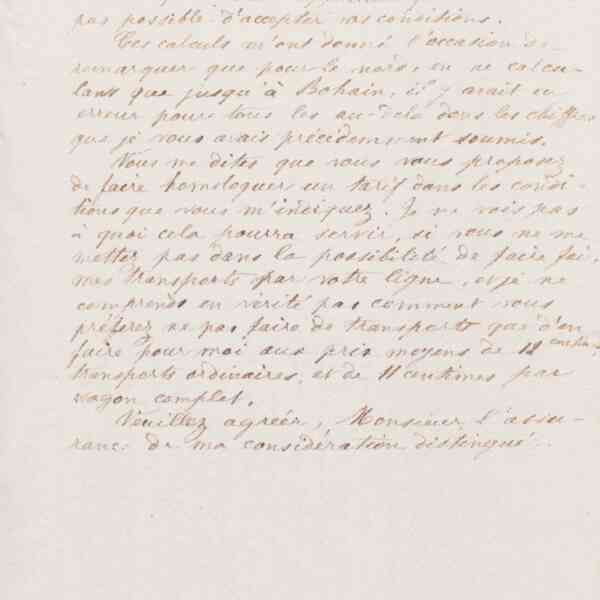 pas possible d'accepter vos conditions.
Ces calculs m'ont donné l'occasion de
remarquer que pour le nord, en ne calcu-
lant que jusqu'à Bohain, il y avait eu
erreur pour tous les au-delà dans les chiffres
que je vous avais précédemment soumis.
Vous me dites que vous vous proposez
de faire homologuer un tarif dans les condi-
tions que vous m'indiquez. Je ne vois pas
à quoi cela pourra servir, si vous ne me
mettez pas dans la possibilité de faire
mes transports par votre ligne, et je ne
comprends en vérité pas comment vous
préférez ne pas faire de transports que d'en
faire pour moi aux prix moyens de 12 centimes
transports ordinaires, et de 11 centimes par
wagon complet.
Veuillez agréer, Monsieur, l'assu-
rance de ma considération distinguée.